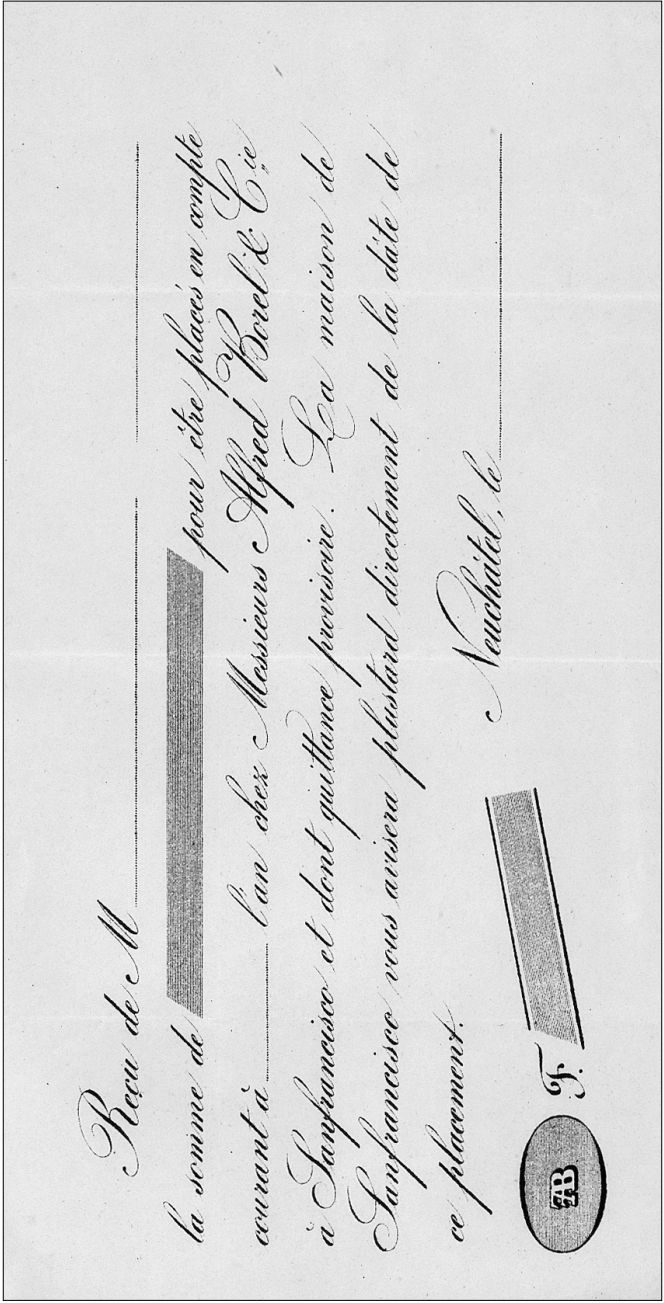 Reçu de M
la somme de pour être placés en compte
courant à l'an chez Messieurs Alfred Borel & C.ie
à Sanfrancisco et dont quittance provisoire. La maison de
Sanfrancisco vous avisera plustard directement de la dâte de
ce placement.
Neuchâtel, le
AB F.